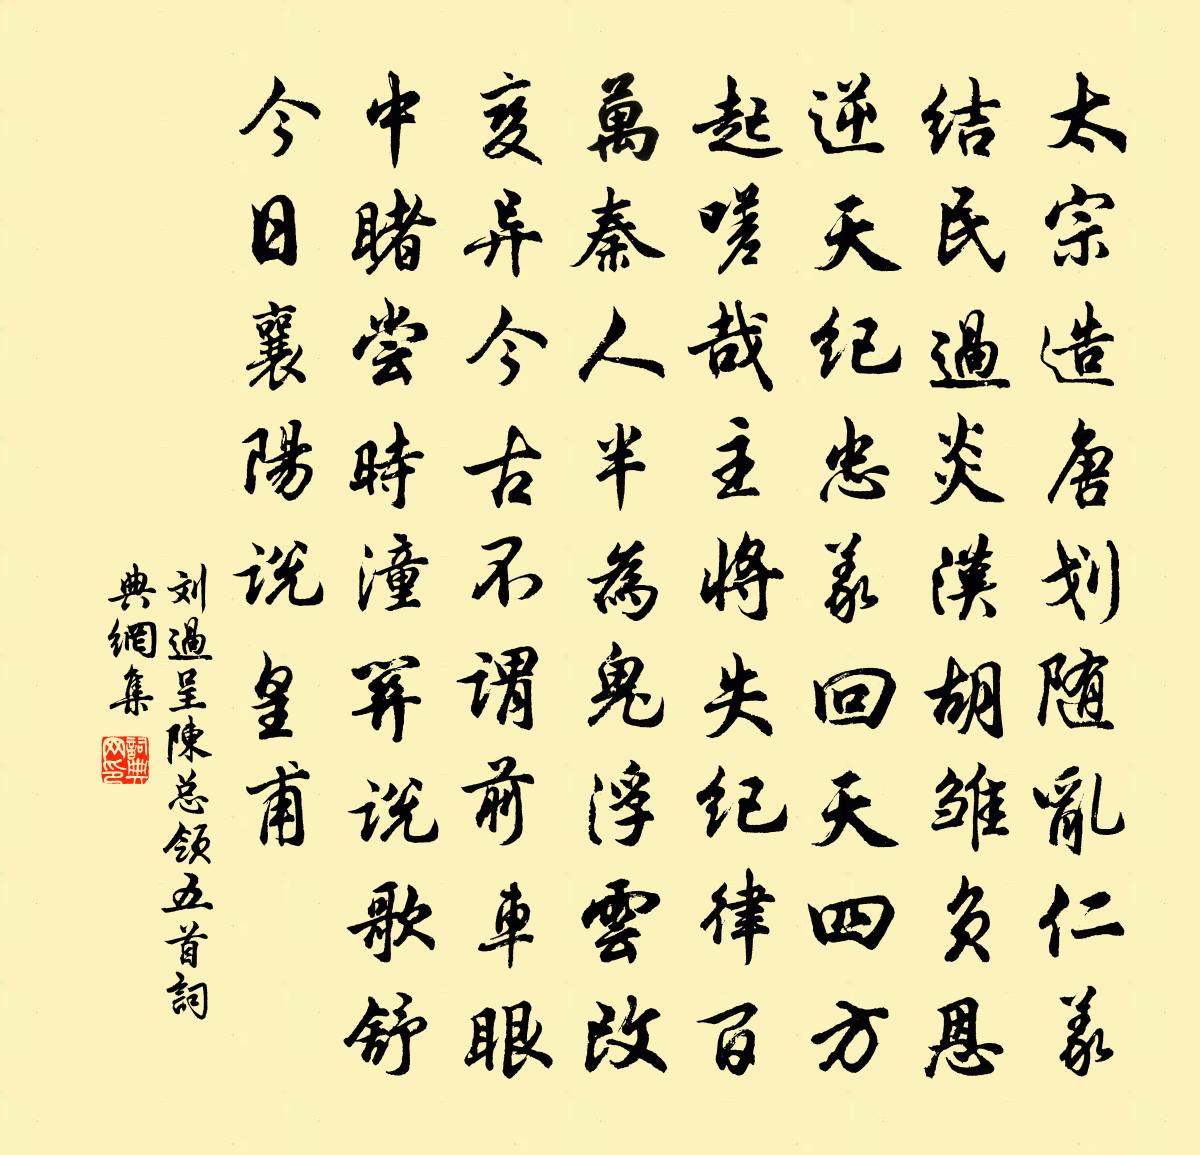 太宗造唐划随亂仁義
结民過炎漢胡雏负恩
逆天纪忠義回天四方
起嗟哉主將失纪律百
萬秦人半為鬼浮雲改
变异今古不谓前車眼
中睹尝時潼関说歌舒
今日襄陽说皇甫
刘過呈陳总领五首詞
典網集
詞典网印